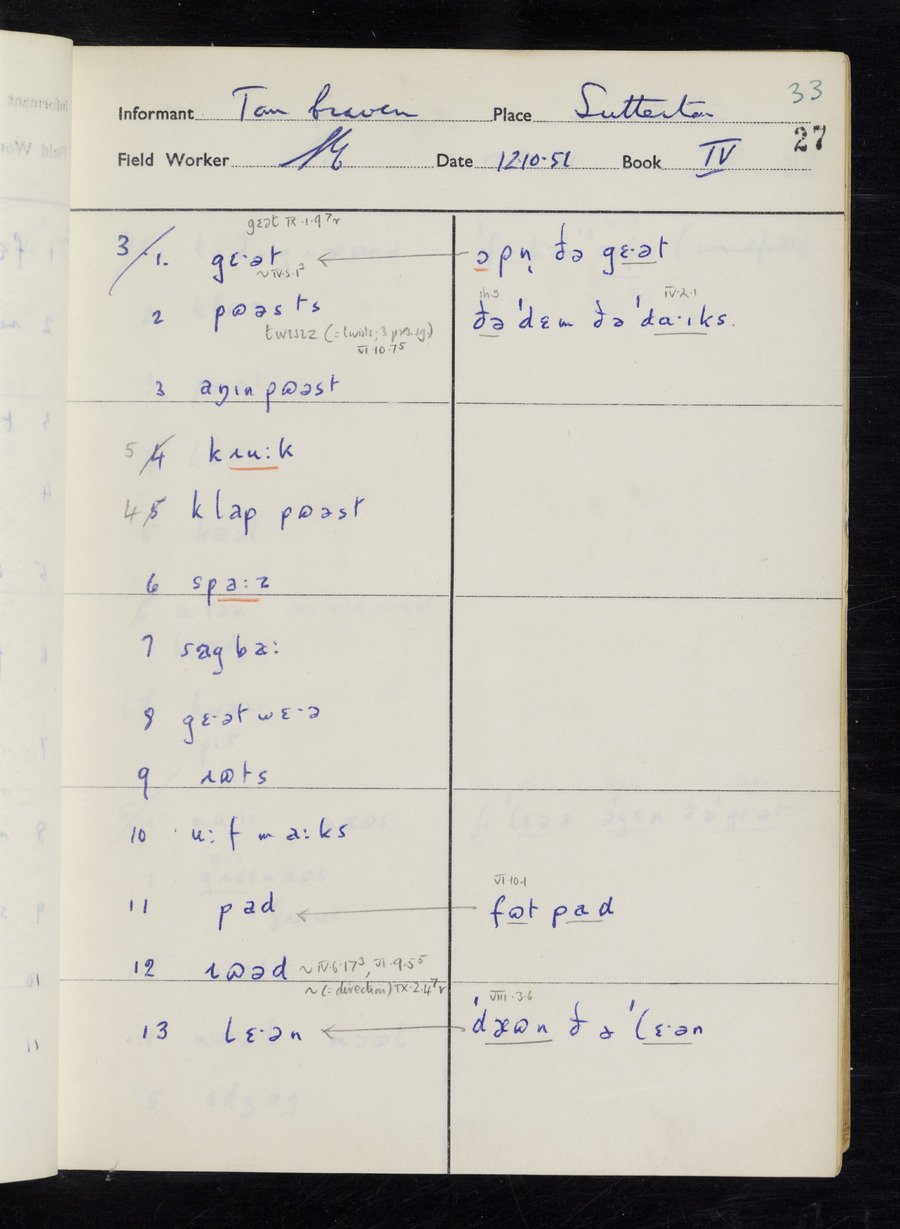 33
Informant Tom Craven Place Sutterton
27
Field Worker Date 12·10·51 Book IV
gɛət IX·1·9
3/ 1. gɛ·ət ɔpn̩ ðə gɛ·ət
~IV·5·1³
ih.3 IV·2·1
2 pʊəsts ðə ˈdɛm ðə ˈda·ɪks.
twɪsɪz (= twists; 3 pres. sg.)
VI·10·7⁵
3 aŋɪn pʊəst
5 4 kɹu:k
4 5 klap pʊəst
6 spa:z
7 sagba:
8 gɛ·ət wɛ·ə
9 ɹʊts
10 u:f ma:ks
VI·10·1
11 pad fʊt pad
12 ɹʊəd ~ IV·6·17³, VI·9·5⁵
~ (= direction) IX·2·4
VIII·3·6
13 lɛ·ən ˈdæʊn ðə ˈlɛ·ən